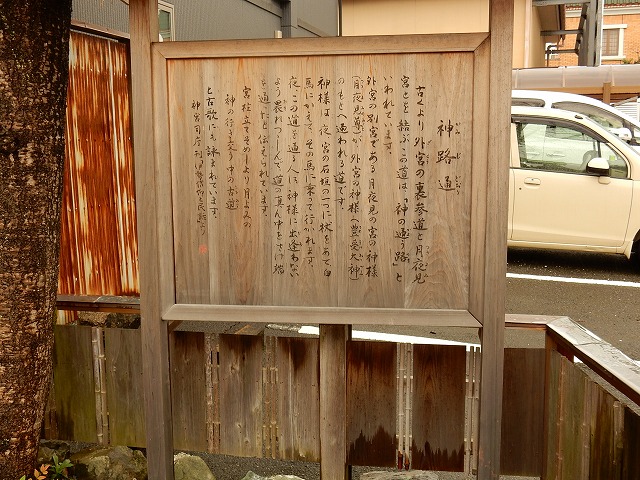 神路通
古くより外宮の裏参道と月夜見
宮とを結ぶこの道は、「神の通う路」と
いわれています。
外宮の別宮である月夜見の宮の神様
(月夜見尊)が外宮の神様(豊受大神)
のもとへ通われる道です。
神様は、夜、宮の石垣の一つに杖をあて白
馬にかえて、その馬に乗って行かれます。
夜、この道を通る人は神様に出逢わない
よう畏れつつしんで、道の真ん中をさけ端
を通ったと伝えられています。
宮柱立てそめしより月よみの
神の行き交う中の古道
と古歌にも詠まれています。